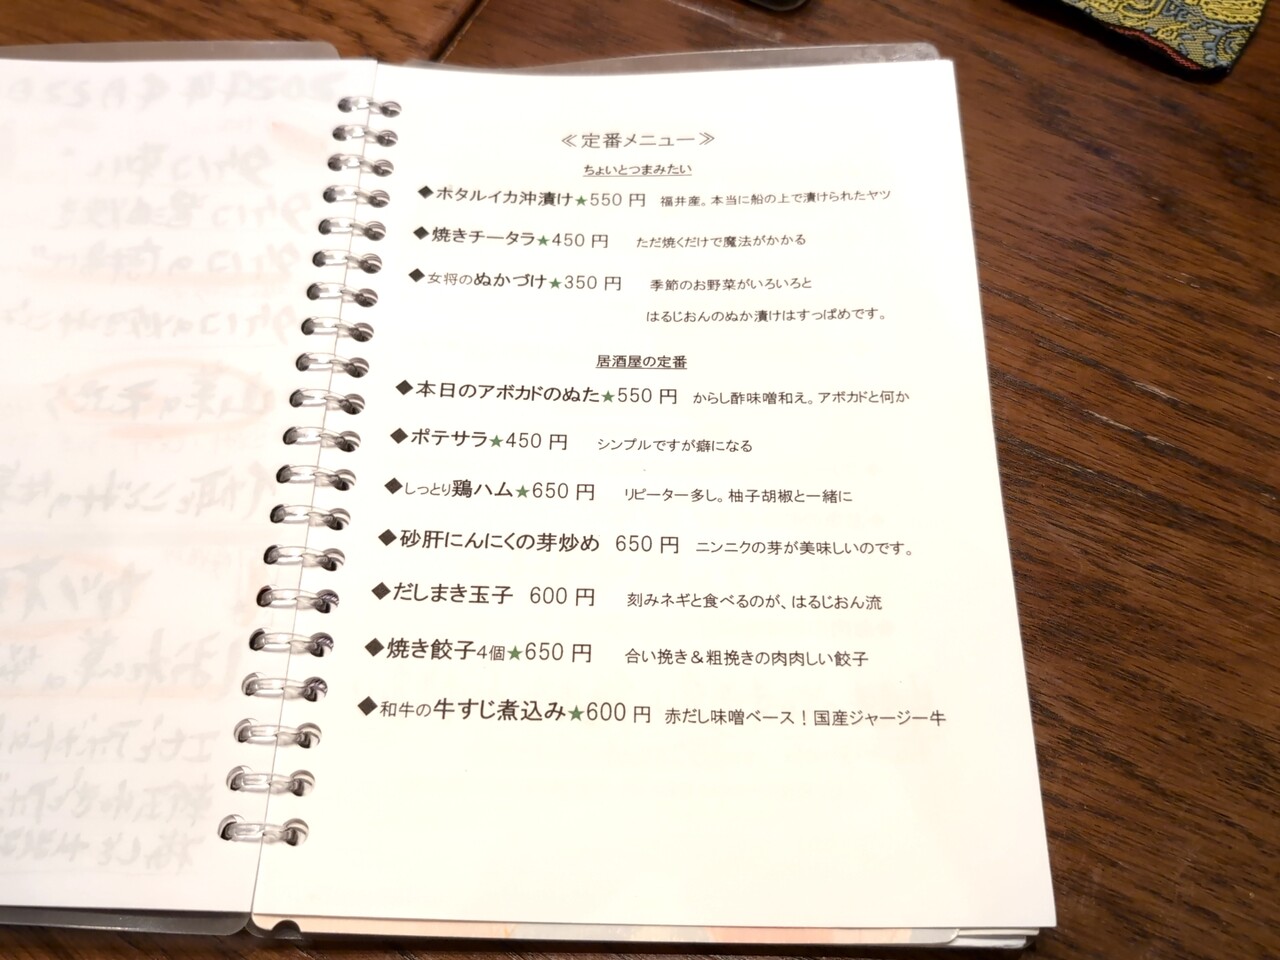 ≪定番メニュー≫
ちょいとつまみたい
◆ホタルイカ沖漬け★550円 福井産。本当に船の上で漬けられたヤツ
◆焼きチータラ★450円 ただ焼くだけで魔法がかかる
◆女将のぬかづけ★350円 季節のお野菜がいろいろと
はるじおんのぬか漬けはすっぱめです。
居酒屋の定番
◆本日のアボカドのぬた★550円 からし酢味噌和え。アボカドと何か
◆ポテサラ★450円 シンプルですが癖になる
◆しっとり鶏ハム★650円 リピーター多し。柚子胡椒と一緒に
◆砂肝にんにくの芽炒め 650円 ニンニクの芽が美味しいのです。
◆だしまき玉子 600円 刻みネギと食べるのが、はるじおん流
◆焼き餃子4個★650円 合い挽き＆粗挽きの肉肉しい餃子
◆和牛の牛すじ煮込み★600円 赤だし味噌ベース！国産ジャージー牛